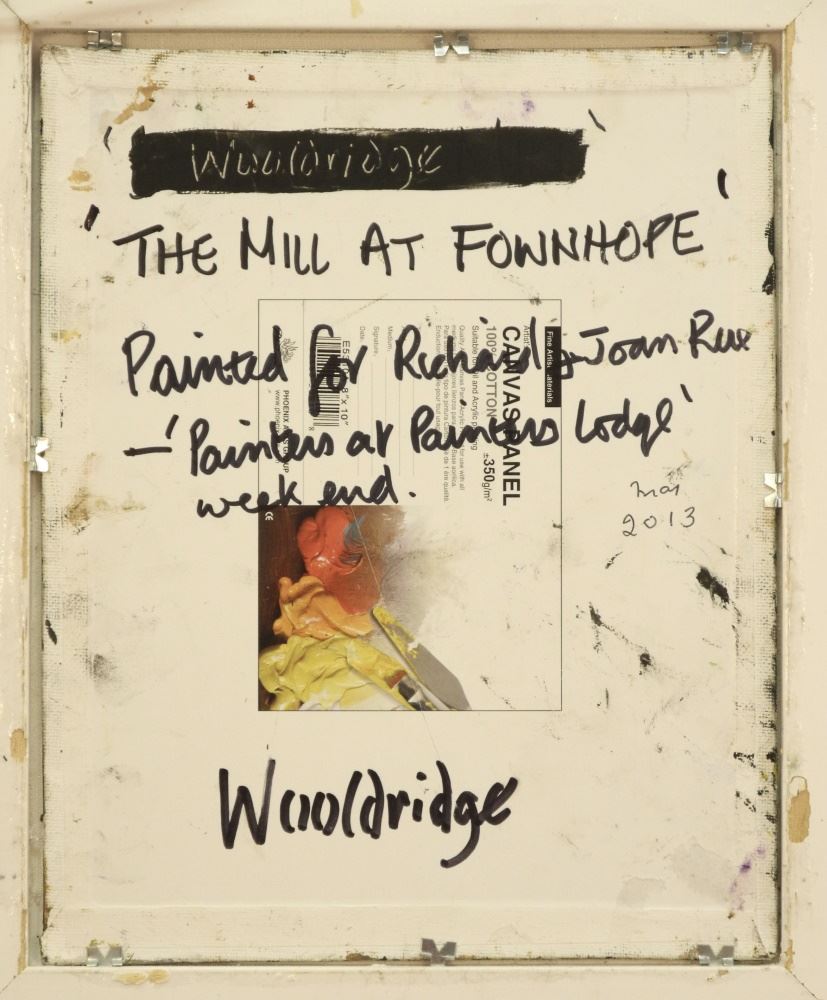 Wooldridge
'THE MILL AT FOWNHOPE'
Painted for Richard & Joan Rux
–'Painters at Painters Lodge'
week end.
mar
2013
Fine Artist Materials
CANVAS PANEL
100% COTTON ±350g/m²
Suitable for Oil and Acrylic painting
Medium:
Signature:
Date:
8"x 10"
PHOENIX ARTS GROUP
CE
Wooldridge